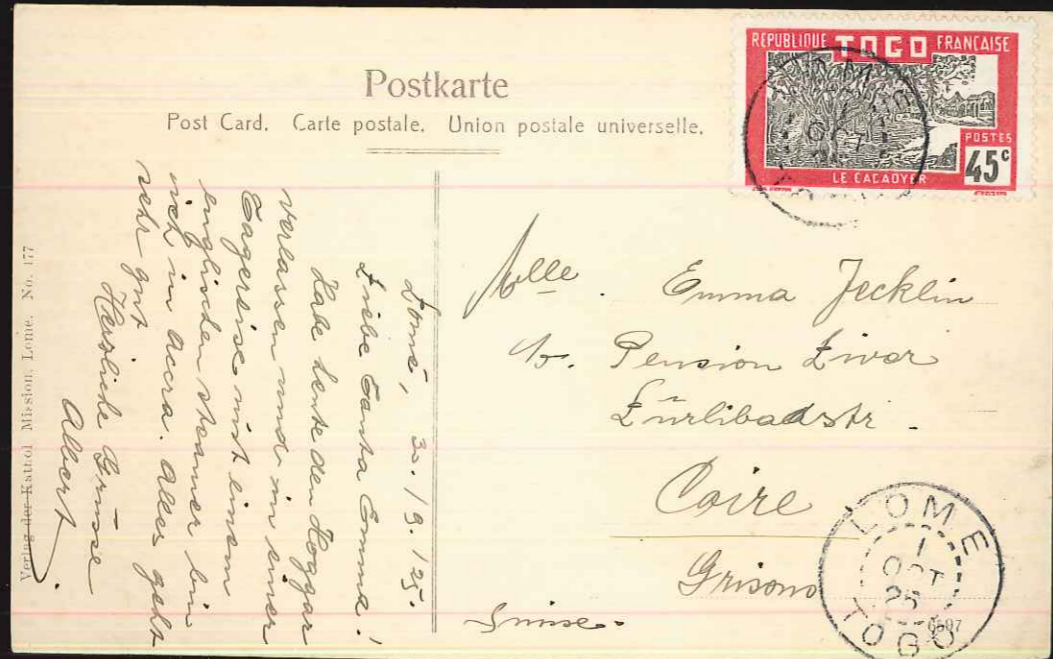 Postkarte
Post Card. Carte postale. Union postale universelle.
REPUBLIQUE TOGO FRANCAISE
POSTES
45c
LE CACAOYER
LOME
1
OCT
25
TOGO
Lomé, 30./9./25.
Liebe Tanta Emma!
Habe heute den Hoggar
verlassen und in einer
Tagereise mit einem
englischen steamer bin
ich in Accra. Alles geht
sehr gut
Herzliche Grüsse
Albert.
Mlle. Emma Jecklin
Pension
Zürlibadstr.
Coire
Grisons
Suisse.
LOME
1
OCT
25
TOGO
6597
Verlag der Kathol Mission, Lome. No. 177